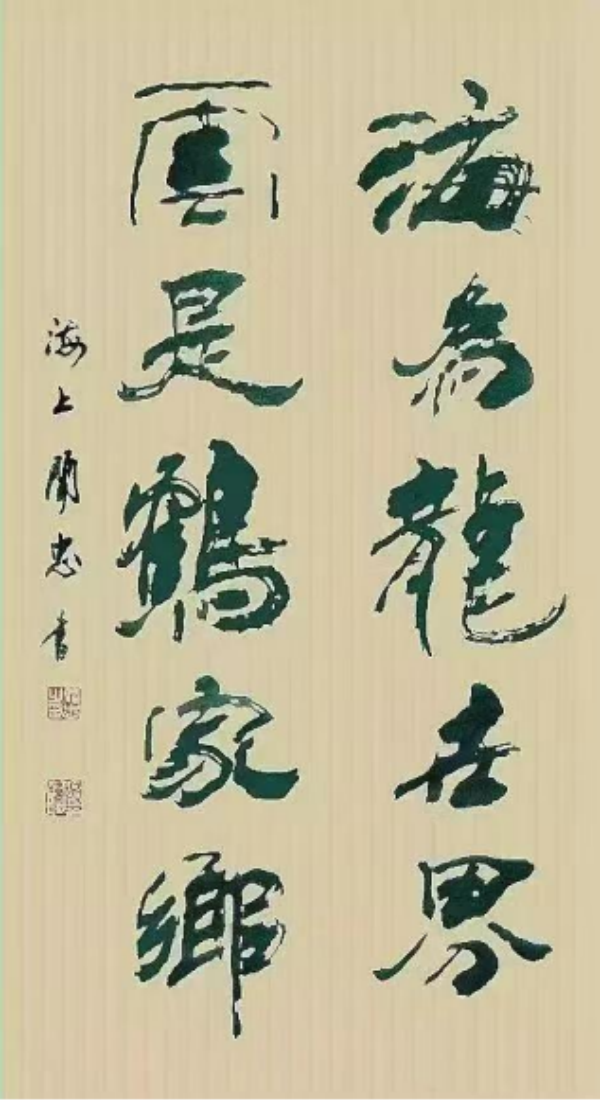 海為龍世界
雲是鶴家鄉
海上聞忠書